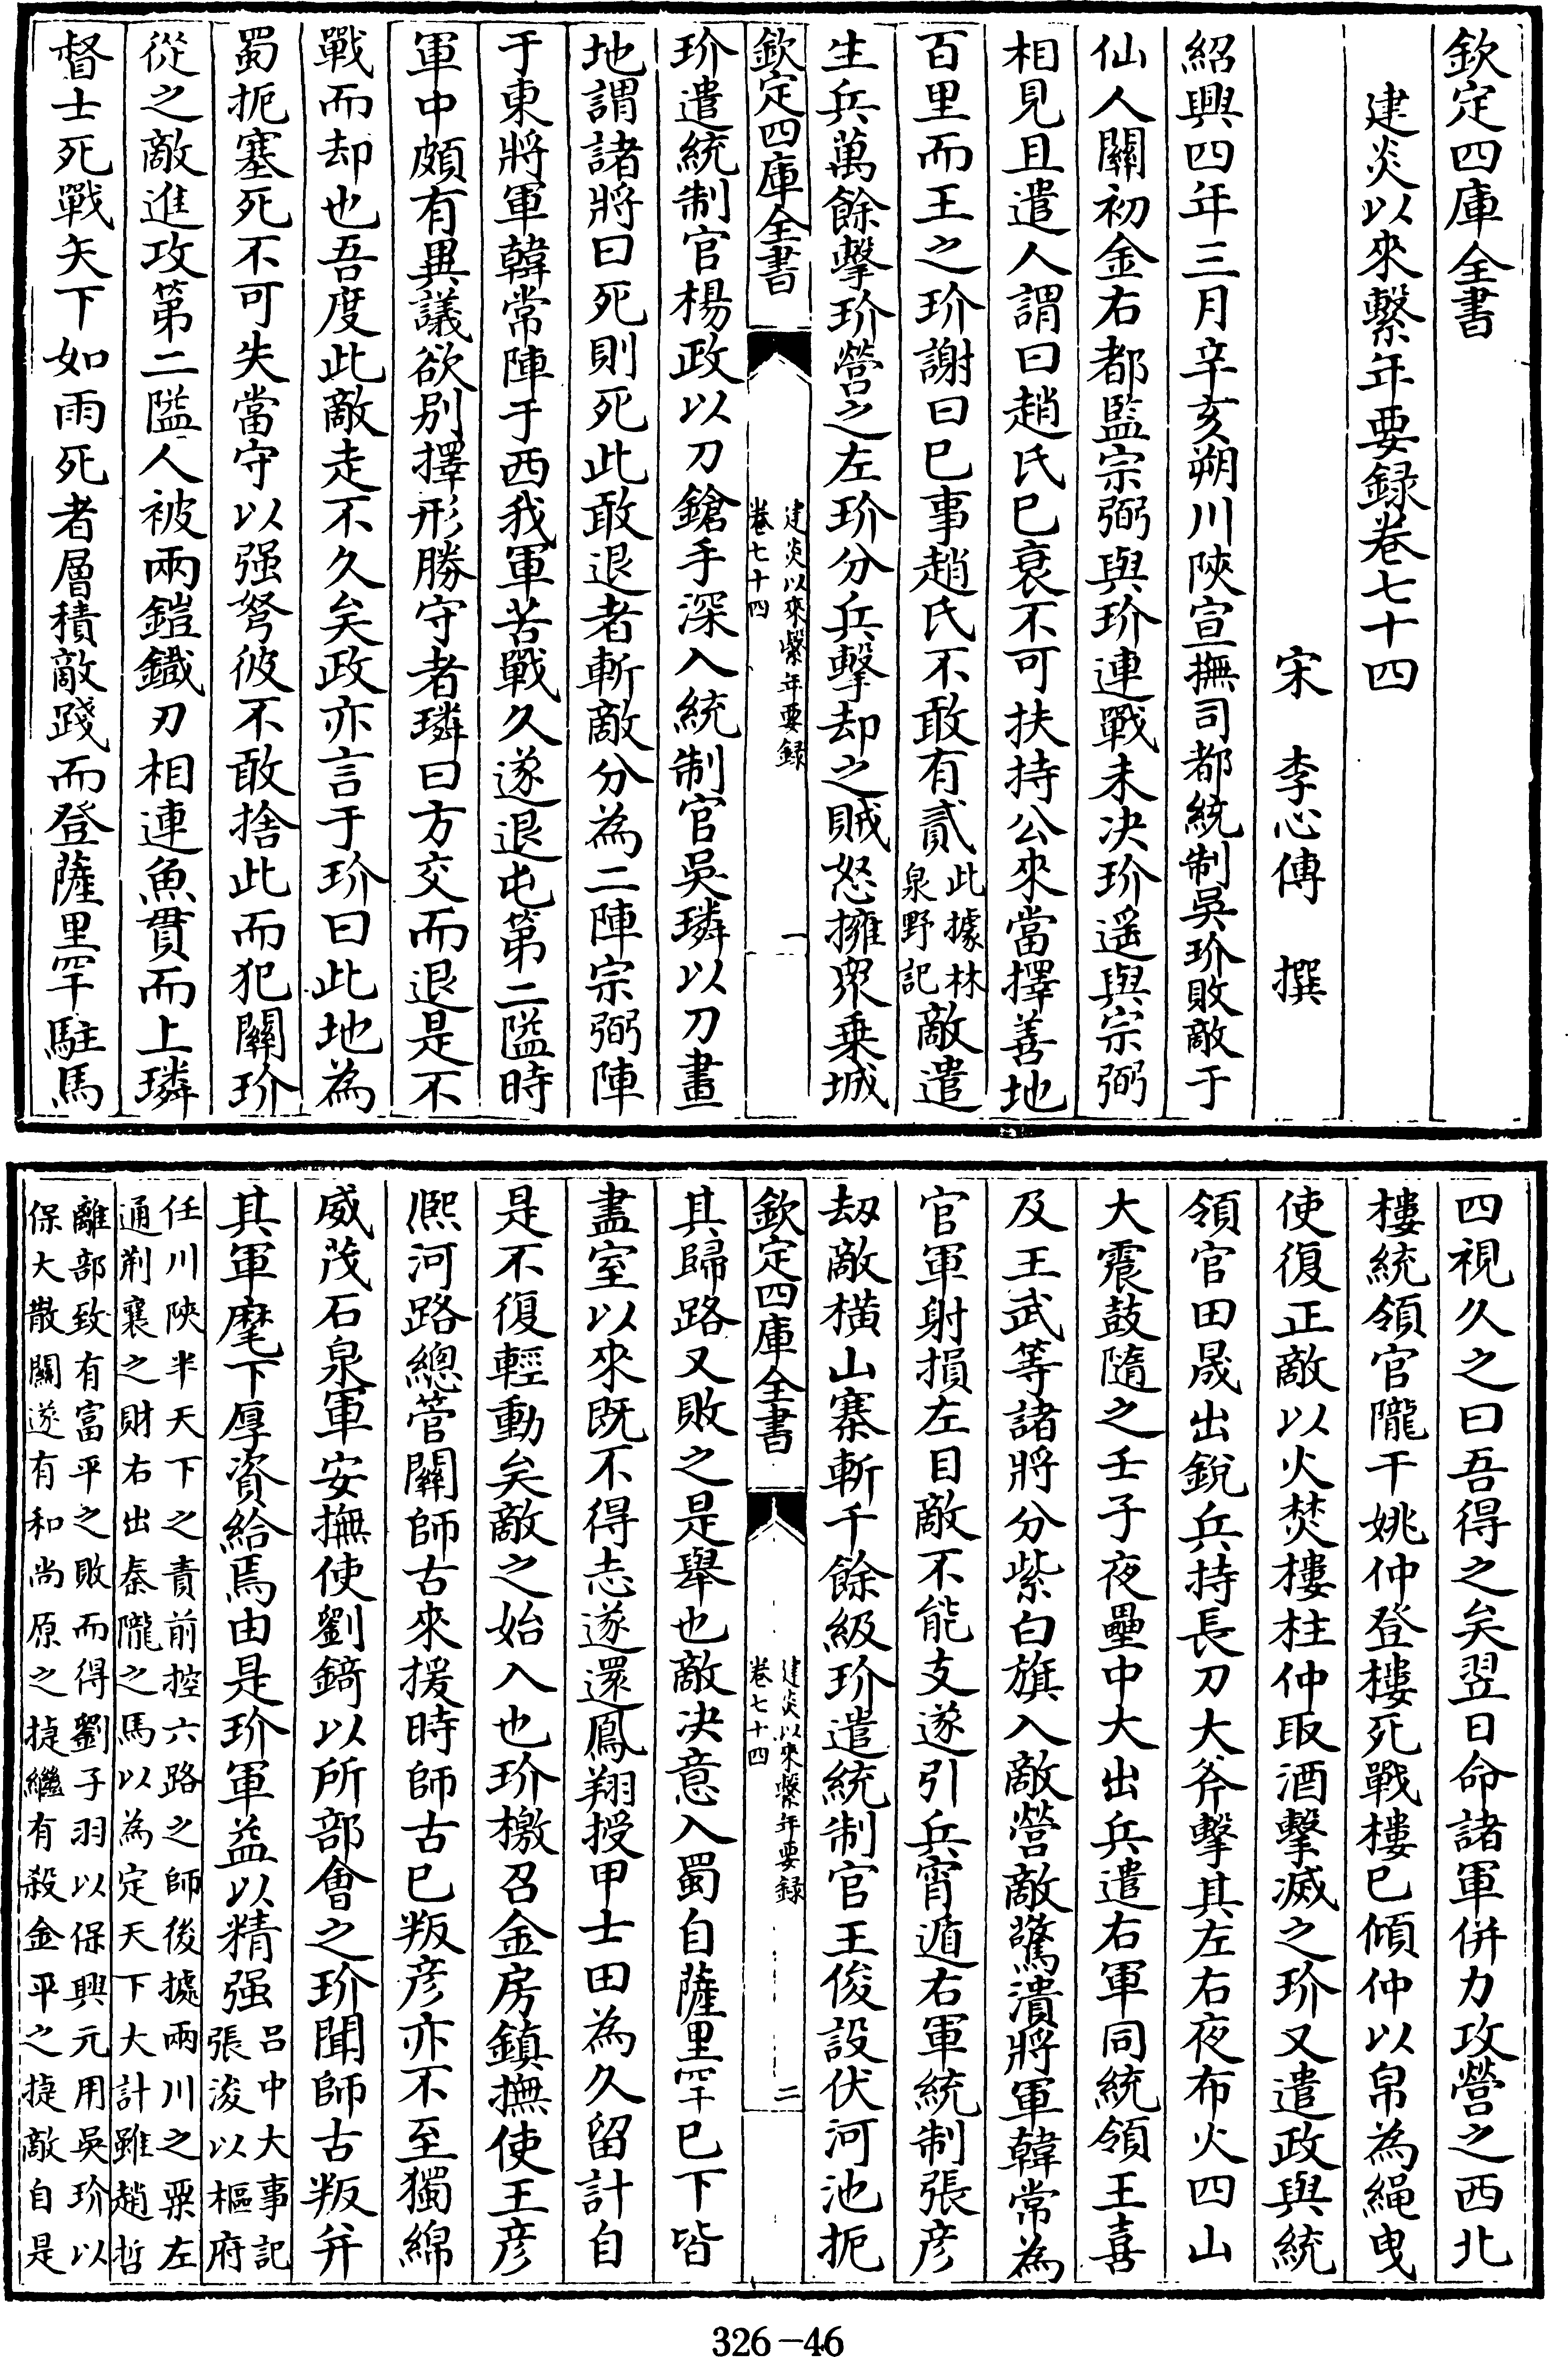 欽定四庫全書
建炎以來繫年要録卷七十四
宋　李心傳　撰
紹興四年三月辛亥朔川陝宣撫司都統制吳玠敗敵于
仙人關初金右都監宗弼與玠連戰未決玠遥與宗弼
相見且遣人謂曰趙氏已衰不可扶持公來當擇善地
百里而王之玠謝曰已事趙氏不敢有貳此據林泉野記敵遣
生兵萬餘擊玠營之左玠分兵擊却之賊怒擁衆乗城
欽定四庫全書
建炎以來繫年要録
卷七十四
一
玠遣統制官楊政以刀鎗手深入統制官吳璘以刀畫
地謂諸將曰死則死此敢退者斬敵分為二陣宗弼陣
于東將軍韓常陣于西我軍苦戰久遂退屯第二隘時
軍中頗有異議欲別擇形勝守者璘曰方交而退是不
戰而却也吾度此敵走不久矣政亦言于玠曰此地為
蜀扼塞死不可失當守以强弩彼不敢捨此而犯關玠
從之敵進攻第二隘人被兩鎧鐵刃相連魚貫而上璘
督士死戰矢下如雨死者層積敵踐而登薩里罕駐馬
四視久之曰吾得之矣翌日命諸軍併力攻營之西北
樓統領官隴干姚仲登樓死戰樓已傾仲以帛為繩曳
使復正敵以火焚樓柱仲取酒擊滅之玠又遣政與統
領官田晟出銳兵持長刀大斧擊其左右夜布火四山
大震鼓隨之壬子夜壘中大出兵遣右軍同統領王喜
及王武等諸將分紫白旗入敵營敵驚潰將軍韓常為
官軍射損左目敵不能支遂引兵宵遁右軍統制張彦
刼敵横山寨斬千餘級玠遣統制官王俊設伏河池扼
欽定四庫全書
建炎以來繫年要録
卷七十四
二
其歸路又敗之是舉也敵决意入蜀自薩里罕已下皆
盡室以來既不得志遂還鳳翔授甲士田為久留計自
是不復輕動矣敵之始入也玠檄召金房鎮撫使王彦
熈河路總管關師古來援時師古已叛彦亦不至獨綿
威茂石泉軍安撫使劉錡以所部會之玠聞師古叛并
其軍麾下厚資給焉由是玠軍益以精强吕中大事記張浚以樞府
任川陝半天下之責前控六路之師後據兩川之粟左
通荆襄之財右出秦隴之馬以為定天下大計雖趙哲
離部致有富平之敗而得劉子羽以保興元用吳玠以
保大散關遂有和尚原之捷繼有殺金平之捷敵自是
326－46